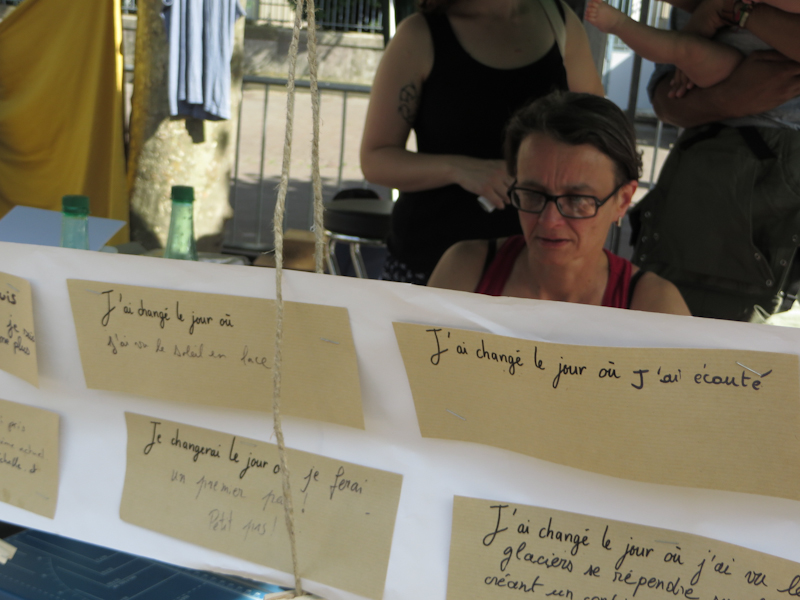 uis
je suis
plus
J'ai changé le jour où
j'ai vu le soleil en face
J'ai changé le jour où J'ai écouté
Je changerai le jour où je ferai
un premier pas !
Petit pas !
J'ai changé le jour où j'ai vu le
glaciers se répendre
créant un